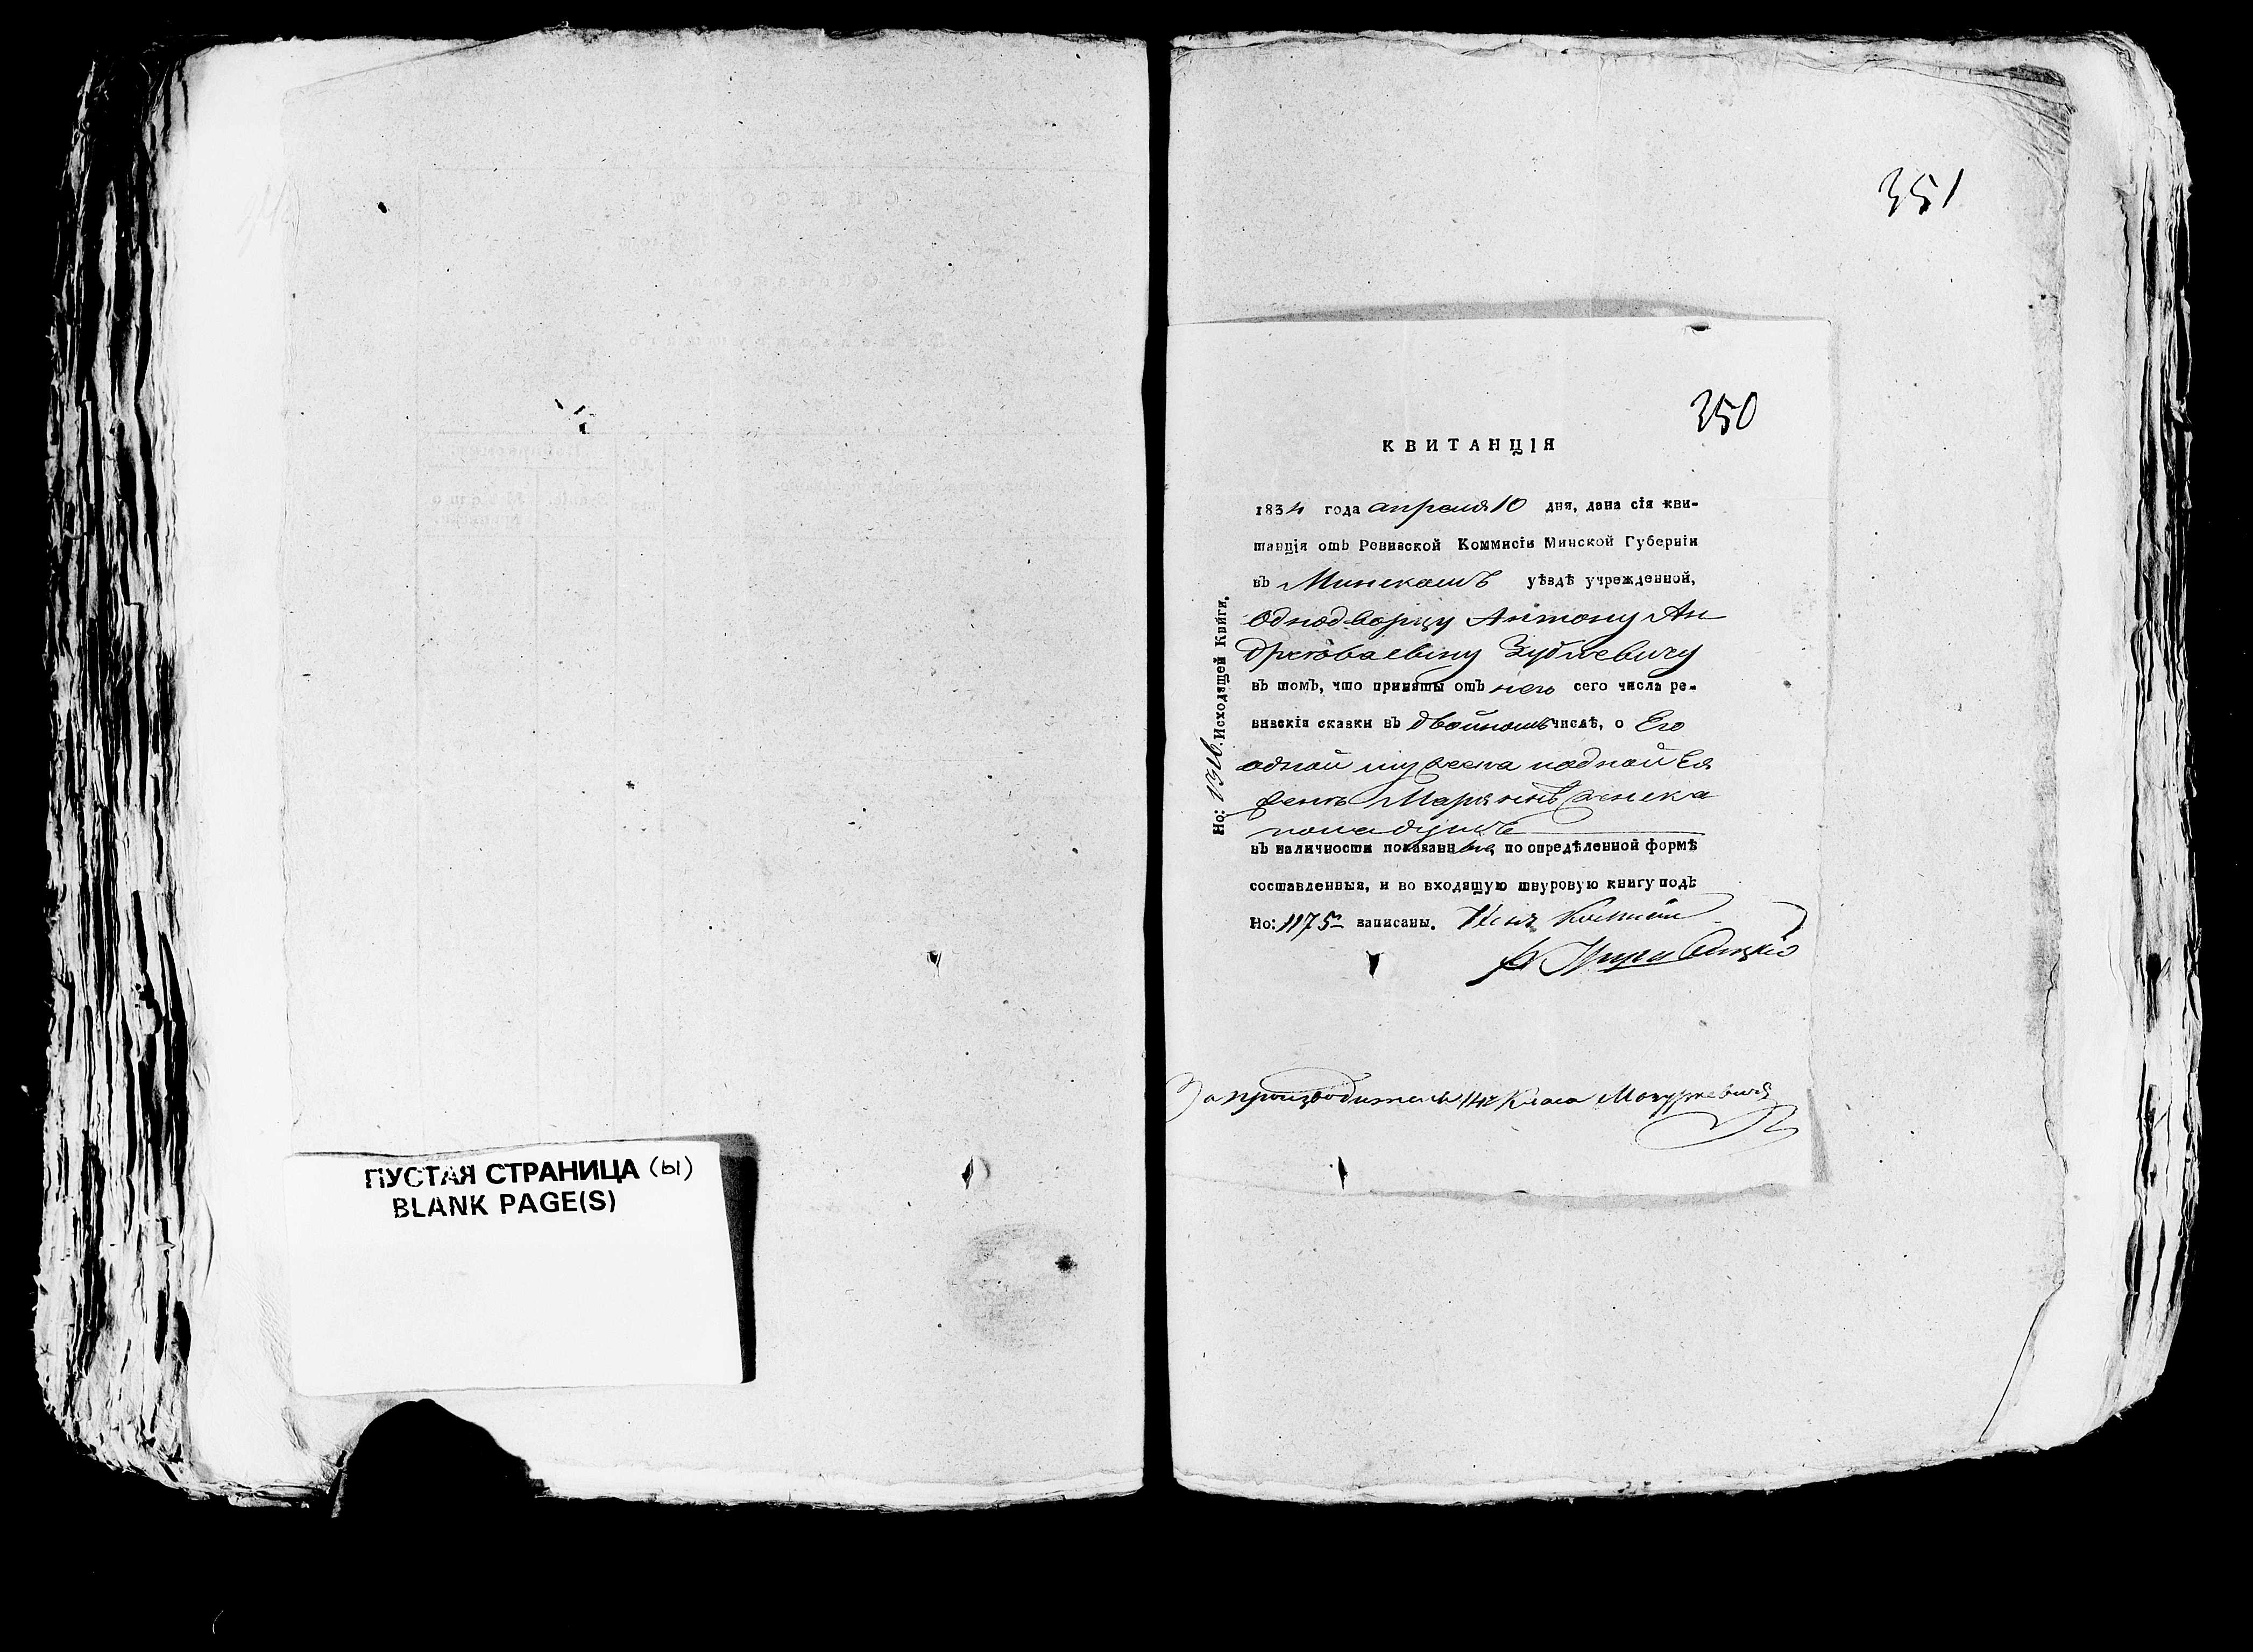 ПУСТАЯ СТРАНИЦА (ы)
BLANK PAGE(S)
351
350
КВИТАНЦІЯ
1834 года апреля 10 дня, дана сія кви-
танція отъ Ревизской Коммисіи Минской Губерніи
въ Минскомъ уѣздѣ учрежденной,
Однодворцу Антону Ан
Зубчевичу
въ томъ, что приняты отъ него сего числа ре-
визскія сказки въ двойномъ числѣ, о Его
одной мужеска и одной
женска
пола душе
въ наличности показанныя, по опредѣленной формѣ
составленныя, и во входящую шнуровую книгу подъ
Но: 1175 записаны.
Но: Исходящей Книги.
За производителя 14 Класа